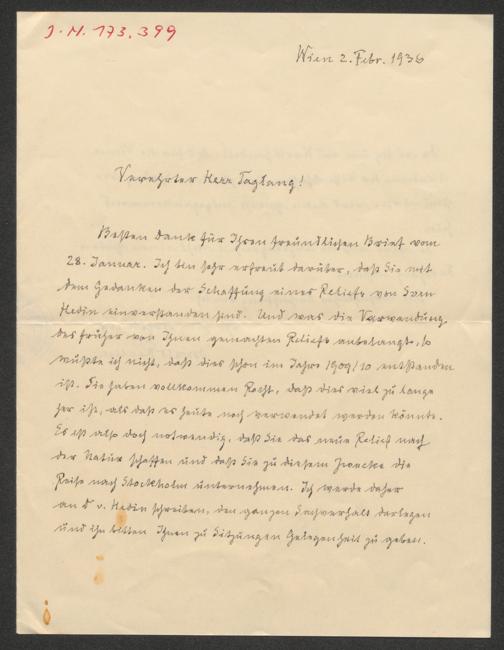 J. N. 173.399
Wien 2. Febr. 1936
Verehrter Herr Taglang!
Besten Dank für Ihren freundlichen Brief vom
28. Januar. Ich bin sehr erfreut darüber, daß Sie mit
dem Gedanken der Schaffung eines Reliefs von Sven
Hedin einverstanden sind. Und was die Verwendung
des früher von Ihnen gemachten Reliefs anbelangt, so
wußte ich nicht, daß dies schon im Jahre 1909/10 entstanden
ist. Sie haben vollkommen Recht, daß dies viel zu lange
her ist, als daß es heute noch verwendet werden könnte.
Es ist also doch notwendig, daß Sie das neue Relief nach
der Natur schaffen und daß Sie zu diesem Zwecke die
Reise nach Stockholm unternehmen. Ich werde daher
an D v. Hedin schreiben, den ganzen Sachverhalt darlegen
und ihn bitten Ihnen zu Sitzungen Gelegenheit zu geben.